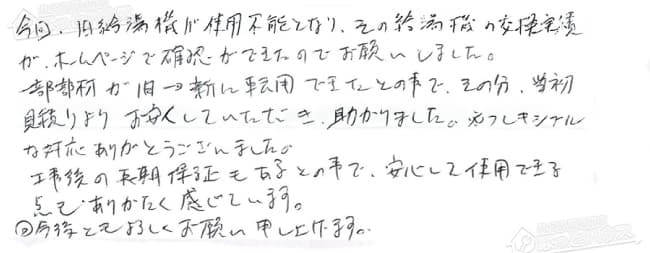 今回、旧給湯機が使用不能となり、その給湯機の交換実績
が、ホームページで確認ができたのでお願いしました。
一部部材が旧→新に転用できたとの事で、その分、当初
見積りよりお安くしていただき、助かりました。フレキシブル
な対応ありがとうございました。
工事後の長期保証もあるとの事で、安心して使用できる
点もありがたく感じています。
今後ともよろしくお願い申し上げます。